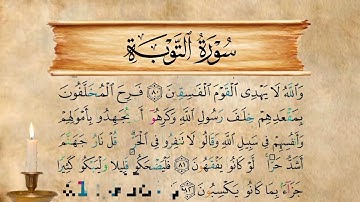 سُورَةُ التَّوْبَةِ
وَاللَّهُ لَا يَهْدِي الْقَوْمَ الْفَاسِقِينَ ٨٠ فَرِحَ الْمُخَلَّفُونَ
بِمَقْعَدِهِمْ خِلَافَ رَسُولِ اللَّهِ وَكَرِهُوا أَن يُجَاهِدُوا بِأَمْوَالِهِمْ
وَأَنفُسِهِمْ فِي سَبِيلِ اللَّهِ وَقَالُوا لَا تَنفِرُوا فِي الْحَرِّ قُلْ نَارُ جَهَنَّمَ
أَشَدُّ حَرًّا لَّوْ كَانُوا يَفْقَهُونَ ٨١ فَلْيَضْحَكُوا قَلِيلًا وَلْيَبْكُوا كَثِيرًا
جَزَاءً بِمَا كَانُوا يَكْسِبُونَ ٨٢